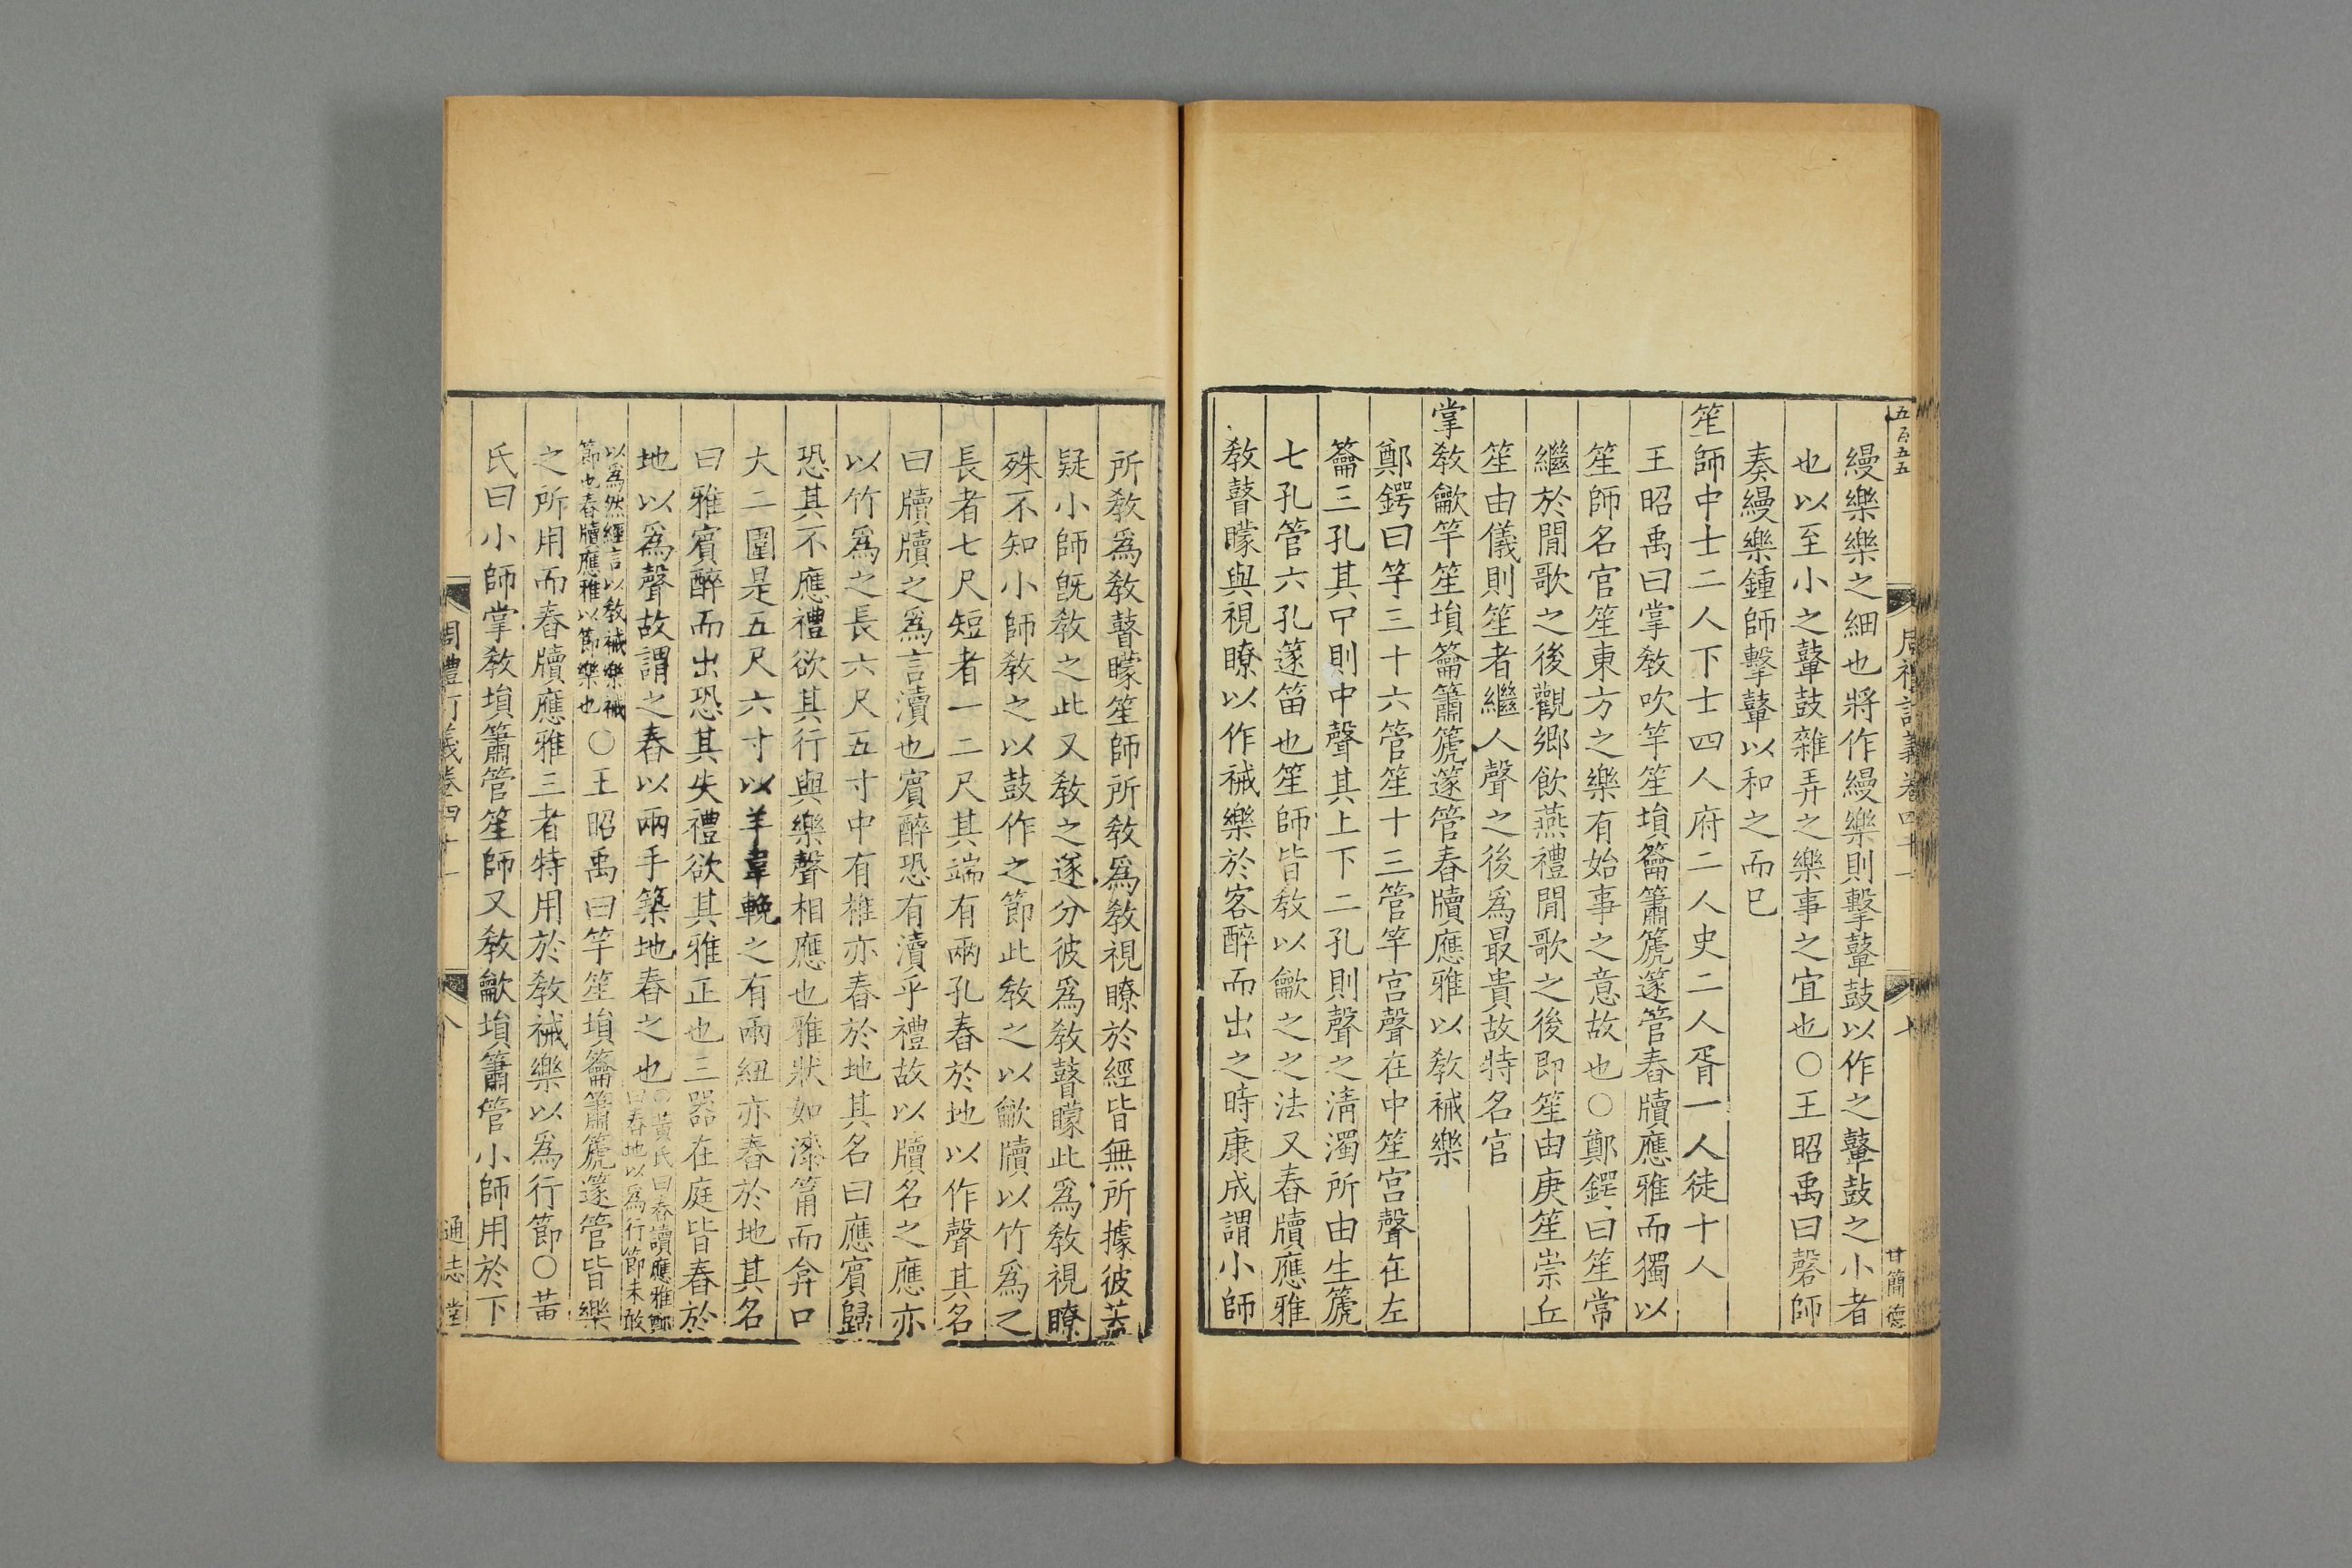 五百五五 周禮訂義卷四十一 七 甘簡德
縵樂樂之細也將作縵樂則擊鼙鼓以作之鼙鼓之小者
也以至小之鼙鼓雜弄之樂事之宜也○王昭禹曰磬師
奏縵樂鍾師擊鼙以和之而已
笙師中士二人下士四人府二人史二人胥一人徒十人
王昭禹曰掌敎吹竽笙塤籥簫篪篴管舂牘應雅而獨以
笙師名官笙東方之樂有始事之意故也○鄭鍔曰笙常
繼於閒歌之後觀鄉飮燕禮閒歌之後即笙由庚笙崇丘
笙由儀則笙者繼人聲之後爲最貴故特名官
掌敎龡竽笙塤籥簫篪篴管舂牘應雅以敎祴樂
鄭鍔曰竽三十六管笙十三管竽宫聲在中笙宫聲在左
籥三孔其中則中聲其上下二孔則聲之淸濁所由生篪
七孔管六孔篴笛也笙師皆敎以龡之之法又舂牘應雅
敎瞽矇與視瞭以作祴樂於客醉而出之時康成謂小師
所敎爲敎瞽矇笙師所敎爲敎視瞭於經皆無所據彼蓋
疑小師旣敎之此又敎之遂分彼爲敎瞽矇此爲敎視瞭
殊不知小師敎之以鼓作之節此敎之以龡牘以竹爲之
長者七尺短者一二尺其端有兩孔舂於地以作聲其名
曰牘牘之爲言瀆也賓醉恐有瀆乎禮故以牘名之應亦
以竹爲之長六尺五寸中有椎亦舂於地其名曰應賓歸
恐其不應禮欲其行與樂聲相應也雅狀如漆筩而弇口
大二圍是五尺六寸以羊韋輓之有兩紐亦舂於地其名
曰雅賓醉而出恐其失禮欲其雅正也三器在庭皆舂於
地以爲聲故謂之舂以兩手築地舂之也○黃氏曰舂讀應雅鄭
曰舂地以爲行節未敢
以爲然經言以敎祴樂祴
節也舂牘應雅以節樂也○王昭禹曰竽笙塤籥簫篪篴管皆樂
之所用而舂牘應雅三者特用於敎祴樂以爲行節○黃
氏曰小師掌敎塤簫管笙師又敎龡塤簫管小師用於下
周禮訂義卷四十一 八 通志堂